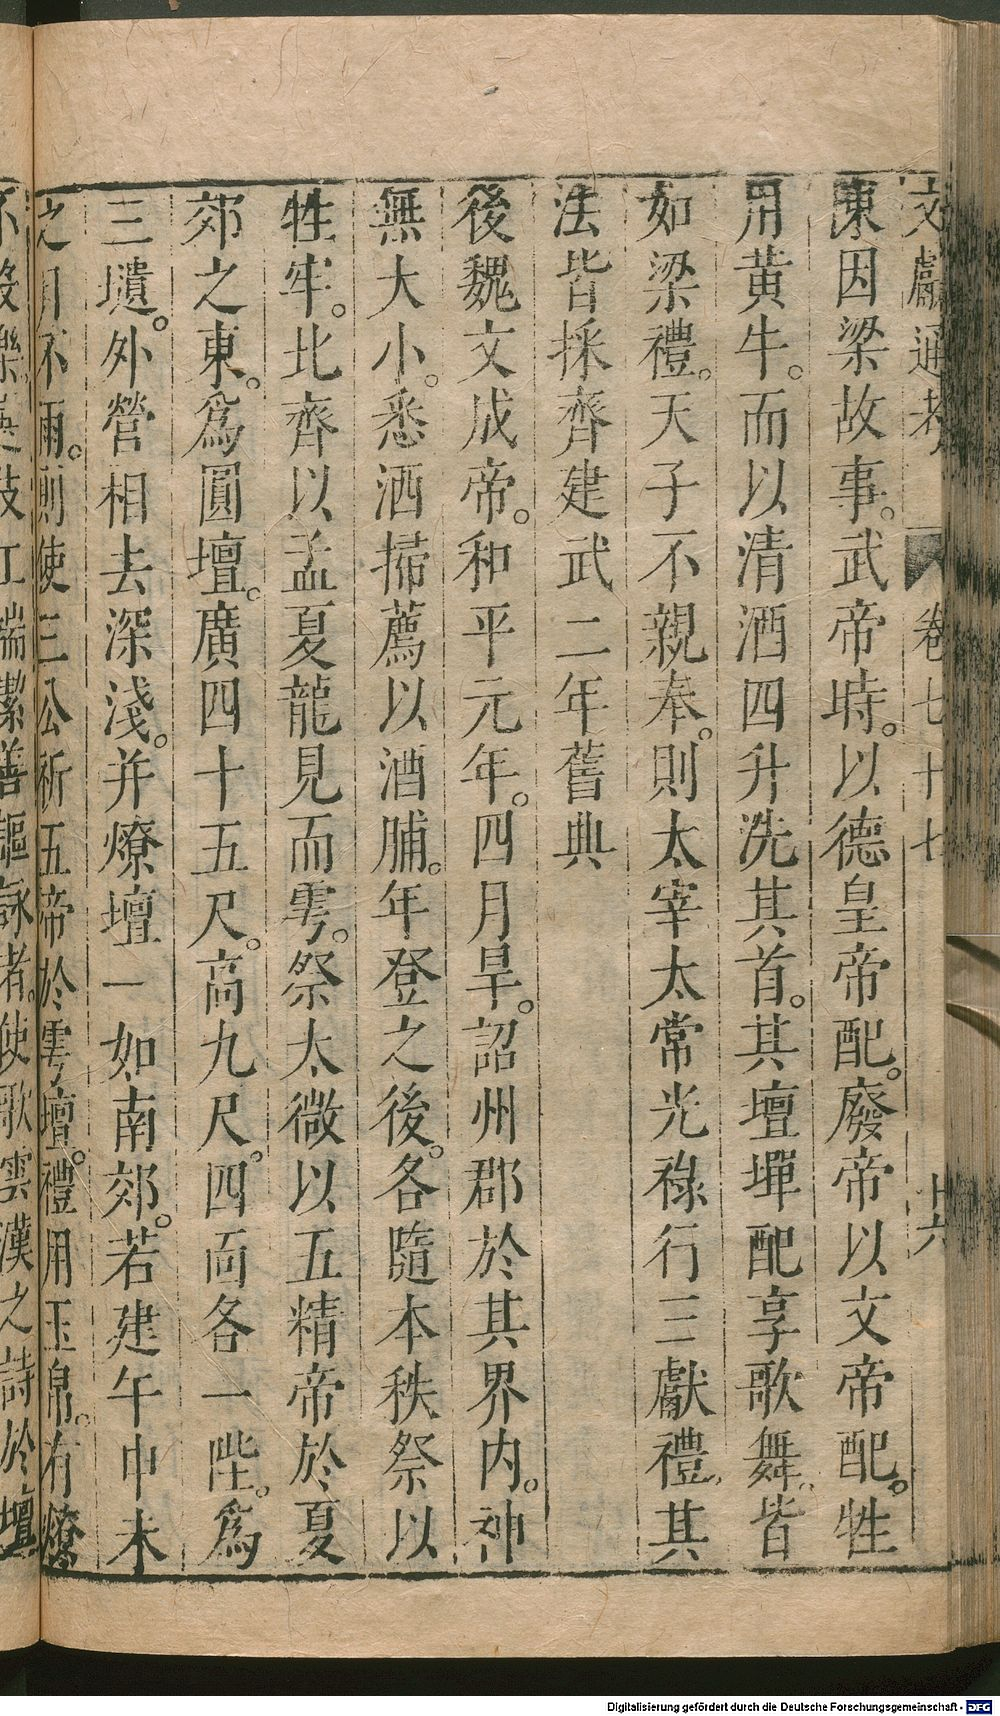 文獻通考 卷七十七 十六
陳因梁故事。武帝時。以德皇帝配。廢帝以文帝配。牲
用黃牛。而以清酒四升洗其首。其壇墠配享歌舞。皆
如梁禮。天子不親奉。則太宰太常光祿行三獻禮。其
法皆採齊建武二年舊典
後魏文成帝。和平元年。四月旱。詔州郡於其界內。神
無大小。悉洒掃薦以酒脯。年登之後。各隨本秩祭以
牲牢。北齊以孟夏龍見而雩。祭太微以五精帝於夏
郊之東。為圓壇。廣四十五尺。高九尺。四面各一陛。為
三壝。外營相去深淺。并燎壇一如南郊。若建午申未
之月不雨。則使三公祈五帝於雩壇。禮用玉帛。有燎
不設樂。選伎工端潔善謳詠者。使歌雲漢之詩於壇
Digitalisierung gefördert durch die Deutsche Forschungsgemeinschaft - DFG